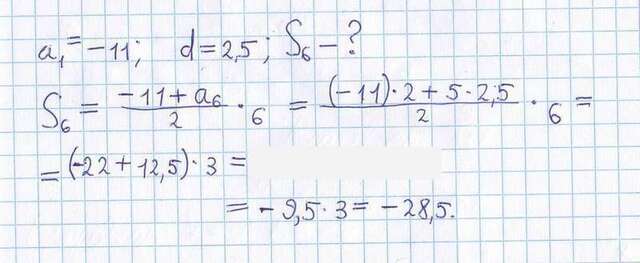 a₁ = -11; d = 2,5; S₆ - ?
S₆ = (-11 + a₆)/2 · 6 = ((-11) · 2 + 5 · 2,5)/2 · 6 =
= (-22 + 12,5) · 3 =
= - 9,5 · 3 = - 28,5.